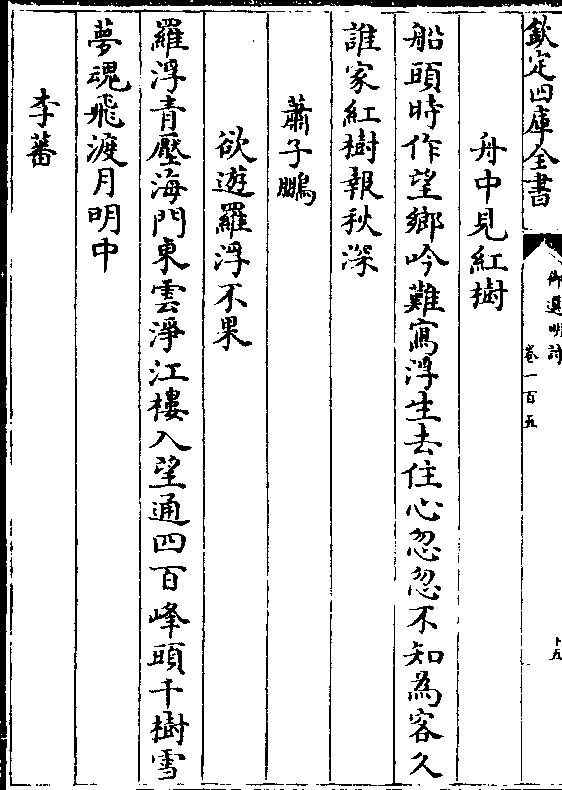 欽定四庫全書
御選明詩
卷一百五
十五
舟中見紅樹
船頭時作望鄉吟難寫浮生去住心忽忽不知為客久
誰家紅樹報秋深
蕭子鵬
欲遊羅浮不果
羅浮青壓海門東雲淨江樓入望通四百峰頭千樹雪
夢魂飛渡月明中
李蕃